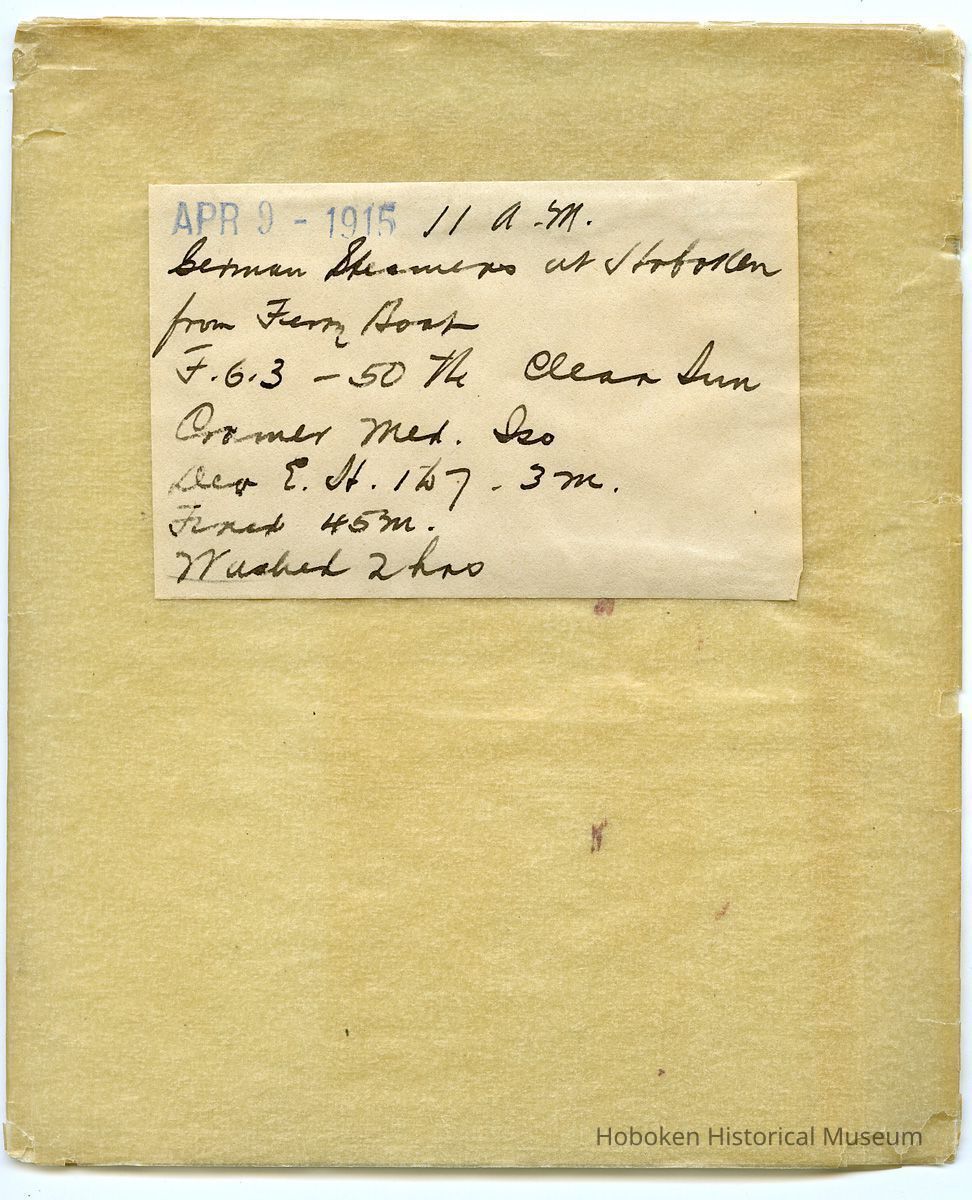 APR 9 - 1915 11 A.M.
German Steamers at Hoboken
from Ferry Boat
F. 6.3 - 50 Th Clear Sun
Cramer Med. Iso
Dev E. H. 1 to 7 - 3 m.
Fixed 45 m.
Washed 2 hrs
Hoboken Historical Museum